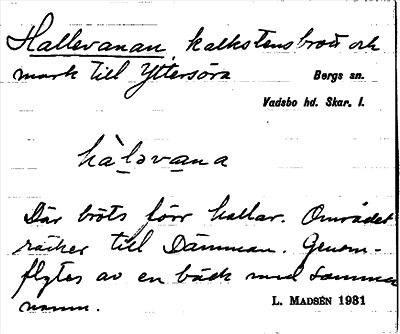 Hallevanan, kalkstensbrott och
mark till Yttersöra
Bergs sn.
Vadsbo hd. Skar. l.
hàləvana
Där bröts förr hallar. Området
räcker till Dämman. Genom-
flytes av en bäck med samma
namn.
L. MADSÉN 1931